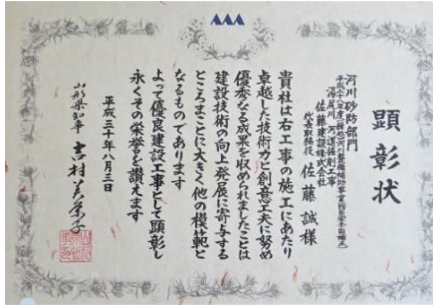 顕彰状
河川砂防部門
佐藤建設株式会社
代表取締役 佐藤 誠 様
貴社は右工事の施工にあたり
卓越した技術力と創意工夫に努め
優秀なる成果を収められましたことは
建設技術の向上発展に寄与する
ところまことに大きく他の模範と
なるものであります
よって優良建設工事として顕彰し
永くその栄誉を讃えます
平成三十年八月三日
山形県知事 吉村美栄子